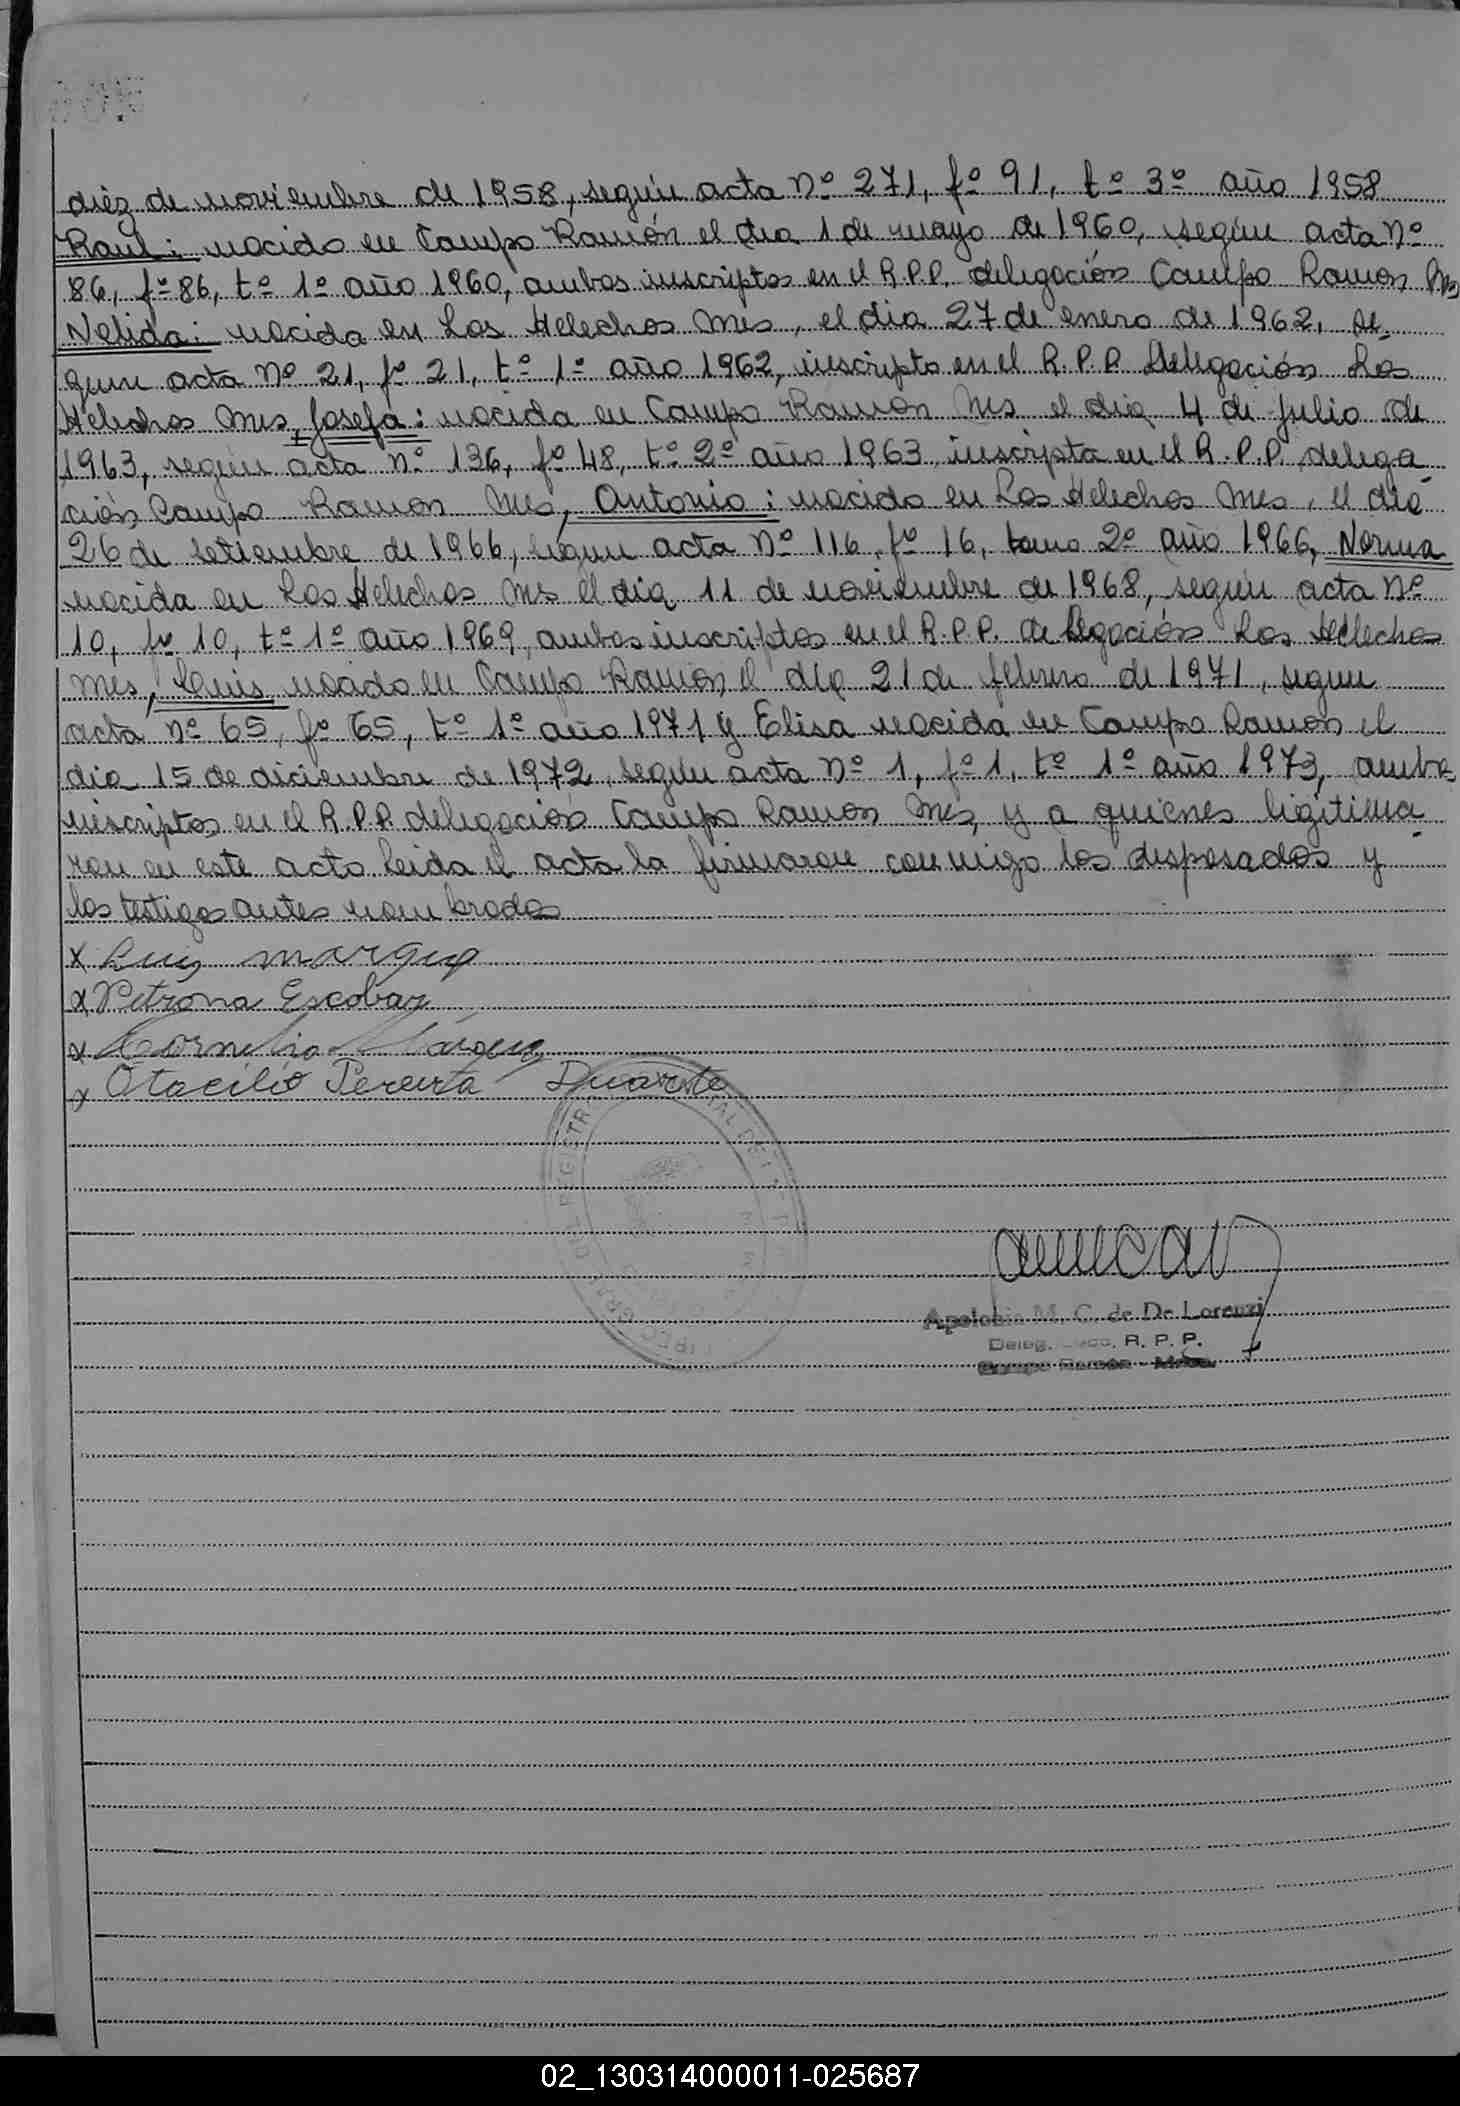 diez de noviembre de 1958, según acta nº 271, fº 91, tº 3º año 1958
Raul: nacido en Campo Ramón el dia 1 de mayo de 1960, según acta nº
86, fº 86, tº 1º año 1960, ambos inscriptos en el R.P.P. delegación Campo Ramon Mns
Nelida: nacida en Los Helechos Mns, el dia 27 de enero de 1962, se-
gun acta nº 21, fº 21, tº 1º año 1962, inscripta en el R.P.P. Delegación Los
Helechos Mns, Josefa: nacida en Campo Ramon Mns el dia 4 de julio de
1963, según acta nº 136, fº 48, tº 2º año 1963 inscripta en el R.P.P. delega-
ción Campo Ramon Mns, Antonio: nacido en Los Helechos Mns, el dia
26 de setiembre de 1966, según acta nº 116, fº 16, tomo 2º año 1966, Norma
nacida en Los Helechos Mns el dia 11 de noviembre de 1968, según acta nº
10, fº 10, tº 1º año 1969, ambos inscriptos en el R.P.P. delegación Los Helechos
Mns, Luis nacido en Campo Ramon el dia 21 de febrero de 1971, segun
acta nº 65, fº 65, tº 1º año 1971 y Elisa nacida en Campo Ramon el
dia 15 de diciembre de 1972, según acta nº 1, fº 1, tº 1º año 1973, ambos
inscriptos en el R.P.P. delegación Campo Ramon Mns, y a quienes ligitima-
ron en este acto leida el acta la firmaron conmigo los desposados y
los testigos antes nombrados
x Luis marquez
x Petrona Escobar
x Cornelio Márquez
x Otacilio Pereira Duarte
Apolonia M. C. de De Lorenzi
Deleg. R. P. P.
Campo Ramón - Mnes.
02_130314000011-025687